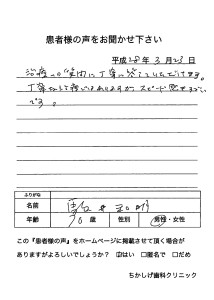 患者様の声をお聞かせ下さい
平成28年3月23日
治療への質問に丁寧に答えていただけます。
丁寧な
です。
ふりがな
名前
年齢 30歳 性別 男性・女性
この『患者様の声』をホームページに掲載させて頂く場合が
ありますがよろしいでしょうか？ はい □匿名で □だめ
ちかしげ歯科クリニック